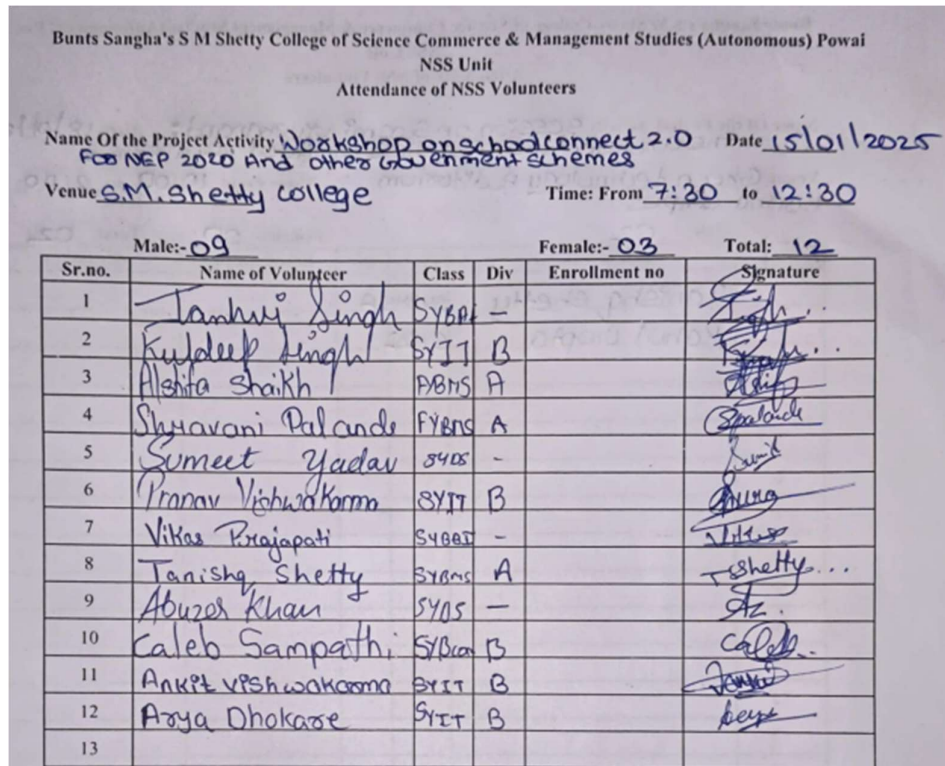 Bunts Sangha's S M Shetty College of Science Commerce & Management Studies (Autonomous) Powai
NSS Unit
Attendance of NSS Volunteers
Name Of the Project Activity Workshop on school connect 2.0 Date 15/01/2025
For NEP 2020 And other Government schemes
Venue S.M. Shetty college Time: From 7:30 to 12:30
Male:- 09 Female:- 03 Total: 12
Sr.no. Name of Volunteer Class Div Enrollment no Signature
1 Tanhuj Singh -
2 Kuldeep Singh SYIT B
3 Alshifa Shaikh A
4 Shravani Palande FYBMS A Spalande
5 Sumeet Yadav SYDS - Sumit
6 Pranav Vishwakarma SYIT B
7 Vikas Prajapati -
8 Tanishq Shetty SYBMS A T Shetty...
9 Abuzer Khan SYDS -
10 Caleb Sampathi SYBcom B Caleb
11 Ankit Vishwakarma SYIT B
12 Arya Dhokare SYIT B
13